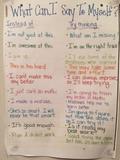 What Can I Say To Myself?
Instead of:
Try thinking:
I'm not good at this.
What am I missing?
I'm awesome at this.
I'm on the right track.
I give up.
I'll use some of the strategies we've learned.
This is too hard.
This may take some time and effort.
I can't make this any better.
I can always improve so I'll keep trying.
I just can't do math.
I'm going to train my brain in math.
I made a mistake.
Mistakes help me to learn better.
She's so smart. I will never be that smart.
I'm going to figure out how she does it.
It's good enough.
Is it really my best work?
Plan A didn't work.